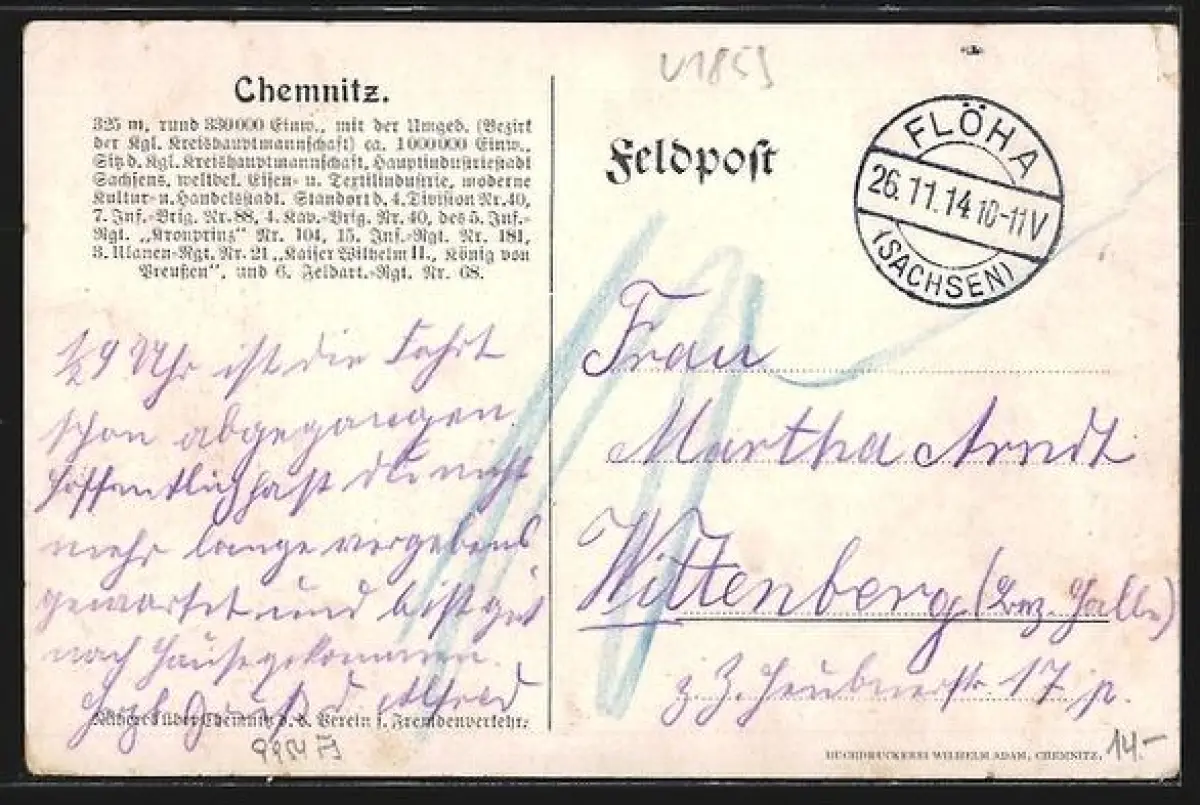 Chemnitz.
325 m, rund 330000 Einw., mit der Umgeb. (Bezirk
der Kgl. Kreishauptmannschaft) ca. 1000000 Einw.,
Sitz d. Kgl. Kreishauptmannschaft, Hauptindustriestadt
Sachsens, weltbek. Eisen- u. Textilindustrie, moderne
Kultur- u. Handelsstadt. Standort d. 4. Division Nr. 40,
7. Inf.-Brig. Nr. 88, 4. Kav.-Brig. Nr. 40, des 5. Inf.-
Rgt. „Kronprinz“ Nr. 104, 15. Inf.-Rgt. Nr. 181,
3. Ulanen-Rgt. Nr. 21 „Kaiser Wilhelm II., König von
Preußen“, und 6. Feldart.-Rgt. Nr. 68.
½9 Uhr ist die Fahrt
schon abgegangen.
Hoffentlich hast du nicht
mehr lange vergebens
gewartet und bist gut
nach Hause gekommen.
Herzl. Gruß d. Alfred
Näheres über Chemnitz d. d. Verein f. Fremdenverkehr.
9954
V1859
Feldpost
FLÖHA
26.11.14 10-11V
(SACHSEN)
Frau
Martha Arndt
Wittenberg (Bez. Halle)
z. Z. Heubnerstr. 17 p.
BUCHDRUCKEREI WILHELM ADAM, CHEMNITZ.
14.-